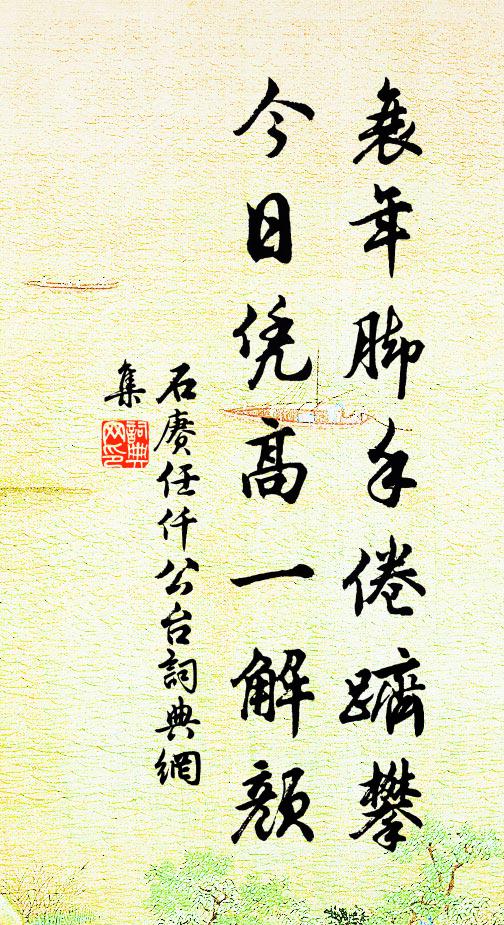 衰年脚手倦躋攀
今日凭高一解顏
石赓任仟公台詞典網
集
詞典網印